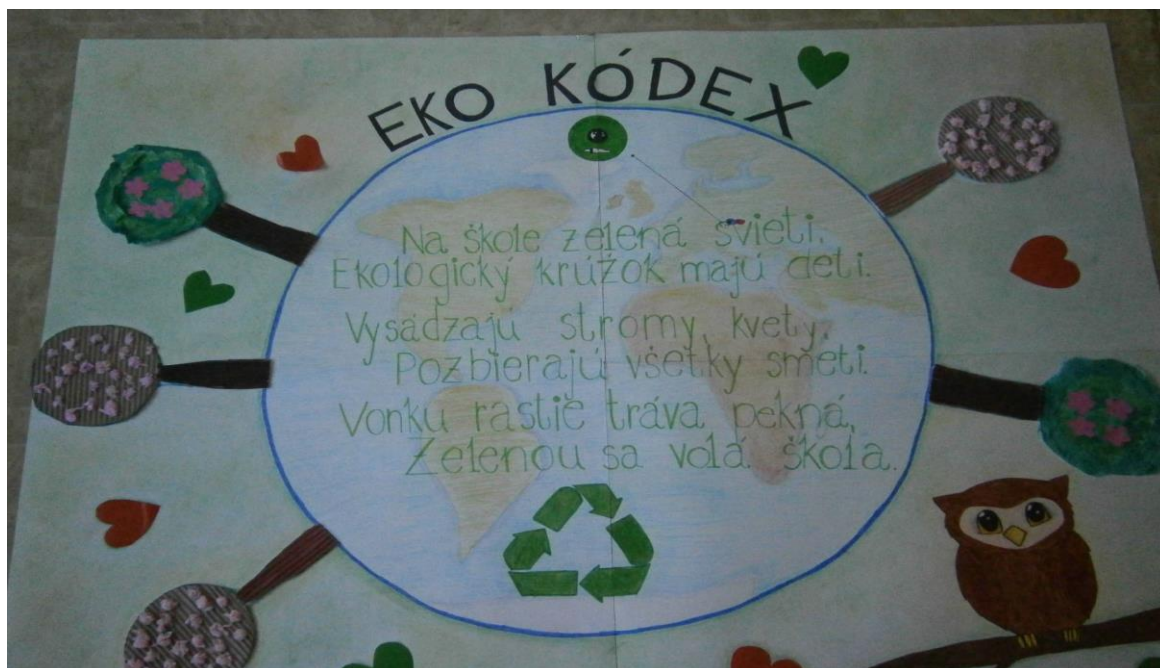 EKO KÓDEX
Na škole zelená svieti.
Ekologický krúžok majú deti.
Vysádzajú stromy, kvety,
Pozbierajú všetky smeti.
Vonku rastie tráva pekná,
Zelenou sa volá škola.